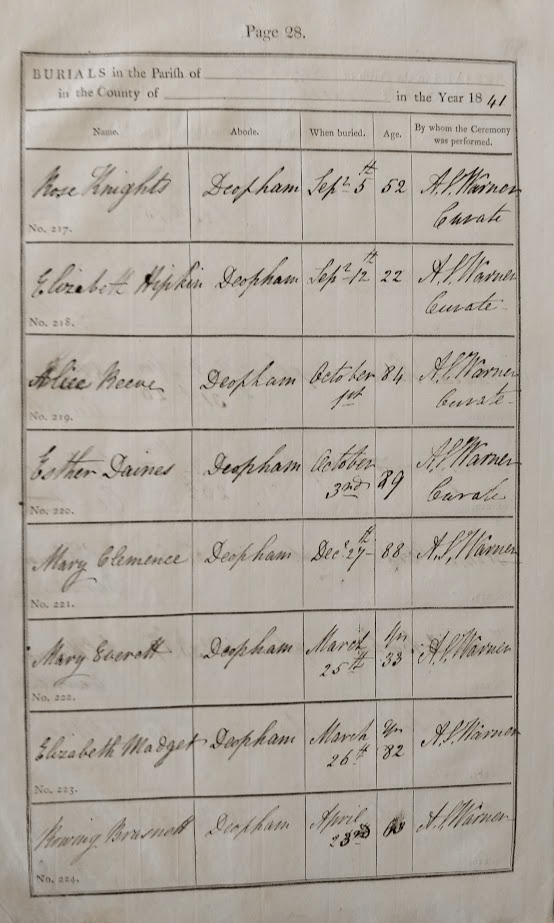 Page 28.
BURIALS in the Parish of
in the County of in the Year 1841
Name. Abode. When buried. Age. By whom the Ceremony was performed.
Rose Knights Deopham Sepr 5th 52 A.S. Warner
Curate
No. 217.
Elizabeth Hipkin Deopham Sepr 12th 22 A.S. Warner
Curate
No. 218.
Alice Reeve Deopham October 84 A.S. Warner
1st Curate
No. 219.
Esther Daines Deopham October A.S. Warner
3rd Curate
No. 220.
Mary Clemence Deopham Decr 27th 88 A.S. Warner
No. 221.
Mary Everett Deopham March Yrs A.S. Warner
25th 33
No. 222.
Elizabeth Madget Deopham March Yrs A.S. Warner
26th 82
No. 223.
Rowing Brasnett Deopham April A.S. Warner
23rd
No. 224.